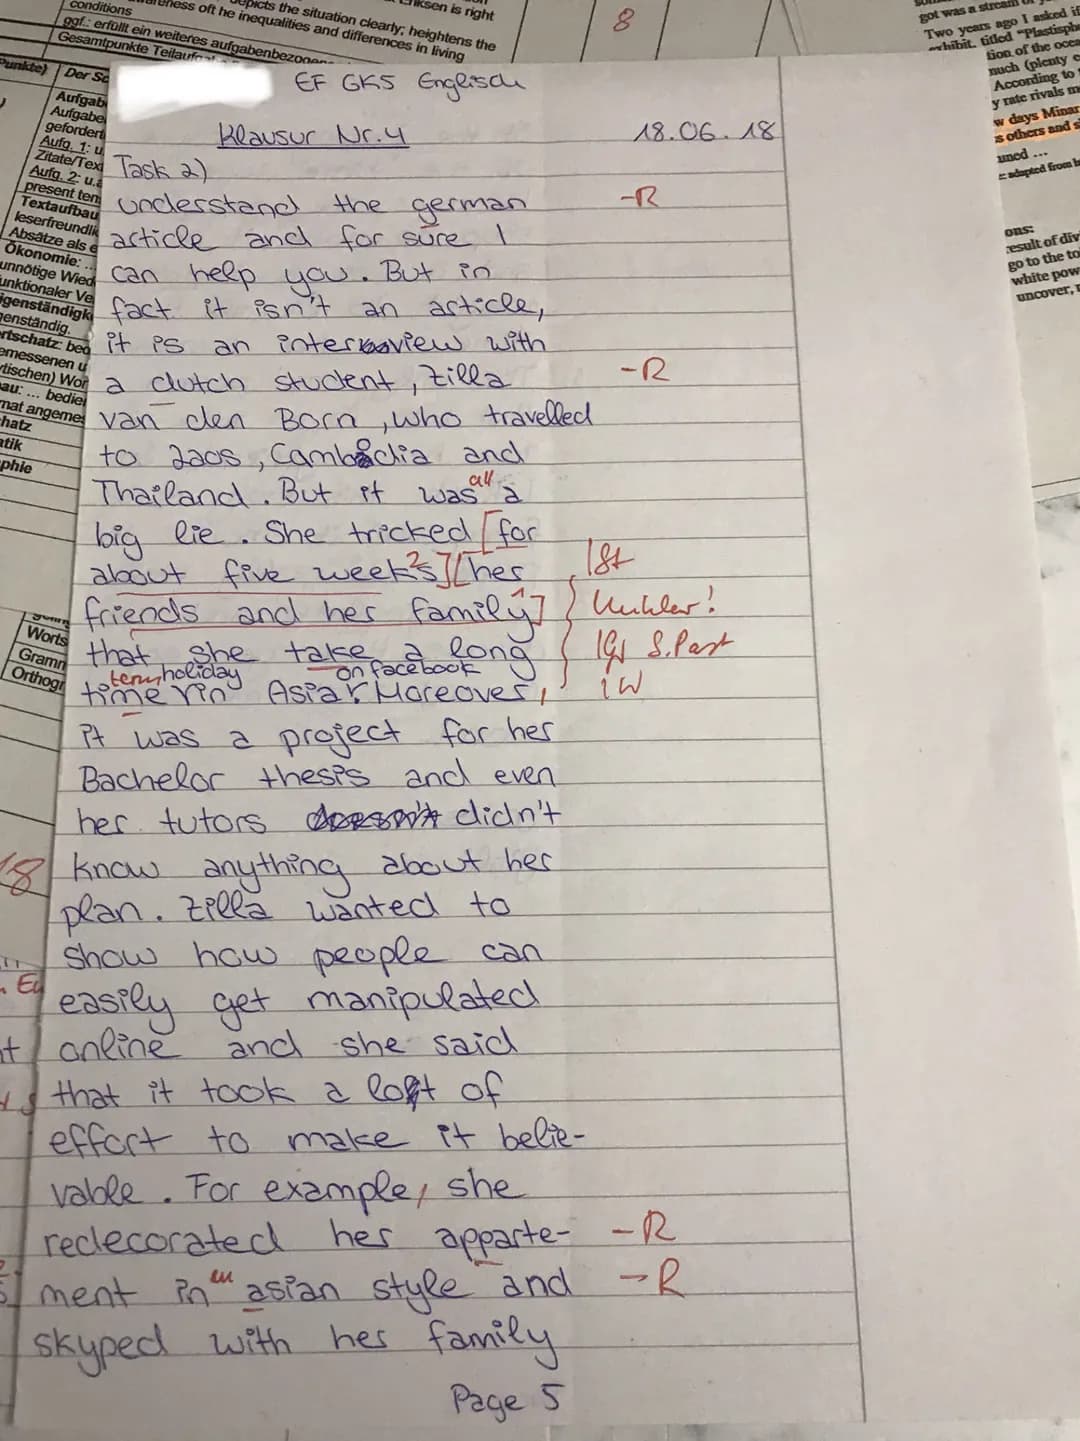 conditions
areness oft he inequalities and differences in living
epicts the situation clearly; heightens the
Eriksen is right
ggf.: erfüllt ein weiteres aufgabenbezogen
Gesamtpunkte Teilauf
8
Punkte)
Der Sc
Aufgab
Aufgabe
gefordert
Aufg. 1: u
Zitate/Tex
Aufg. 2: u.a
present ten
Textaufbau
leserfreundlic
Absätze als e
Ökonomie: ..
unnötige Wied
unktionaler Ve
igenständigk
genständig.
rtschatz: bed
emessenen u
tischen) Wor
au: ... bedie
mat angemes
hatz
atik
phie
Worts
Gramn
Orthogr
18
got was a stream
Two years ago I asked if
exhibit, titled "Plastisph
tion of the ocea
much (plenty
According to
y rate rivals m
w days Minar
s others and s
uned ...
adapted from
ons:
result of div
go to the to
white pow
uncover,
EF GK5 Englisch
Klausur Nr.4 18.06.18
Task 2)
understand the german -R
article and for sure I
can help you. But in
fact it isn't an article,
it is an interview with
a dutch student, Zilla -R
van den Born, who travelled
to Laos, Cambodia and
Thailand. But it was all a
big lie. She tricked [for
about five weeks]² [her |St
friends and her family¹]
that she take a long |Gr S.Past
term holiday on facebook
time in Asia. Moreover, iW
it was a project for her
Bachelor thesis and even
her tutors doesn't didn't
know anything about her
plan. Zilla wanted to
show how people can
easily get manipulated
online and she said
that it took a lot of
effort to make it belie-
vable. For example, she
redecorated her apparte- -R
ment in asian style and -R
skyped with her family
Page 5